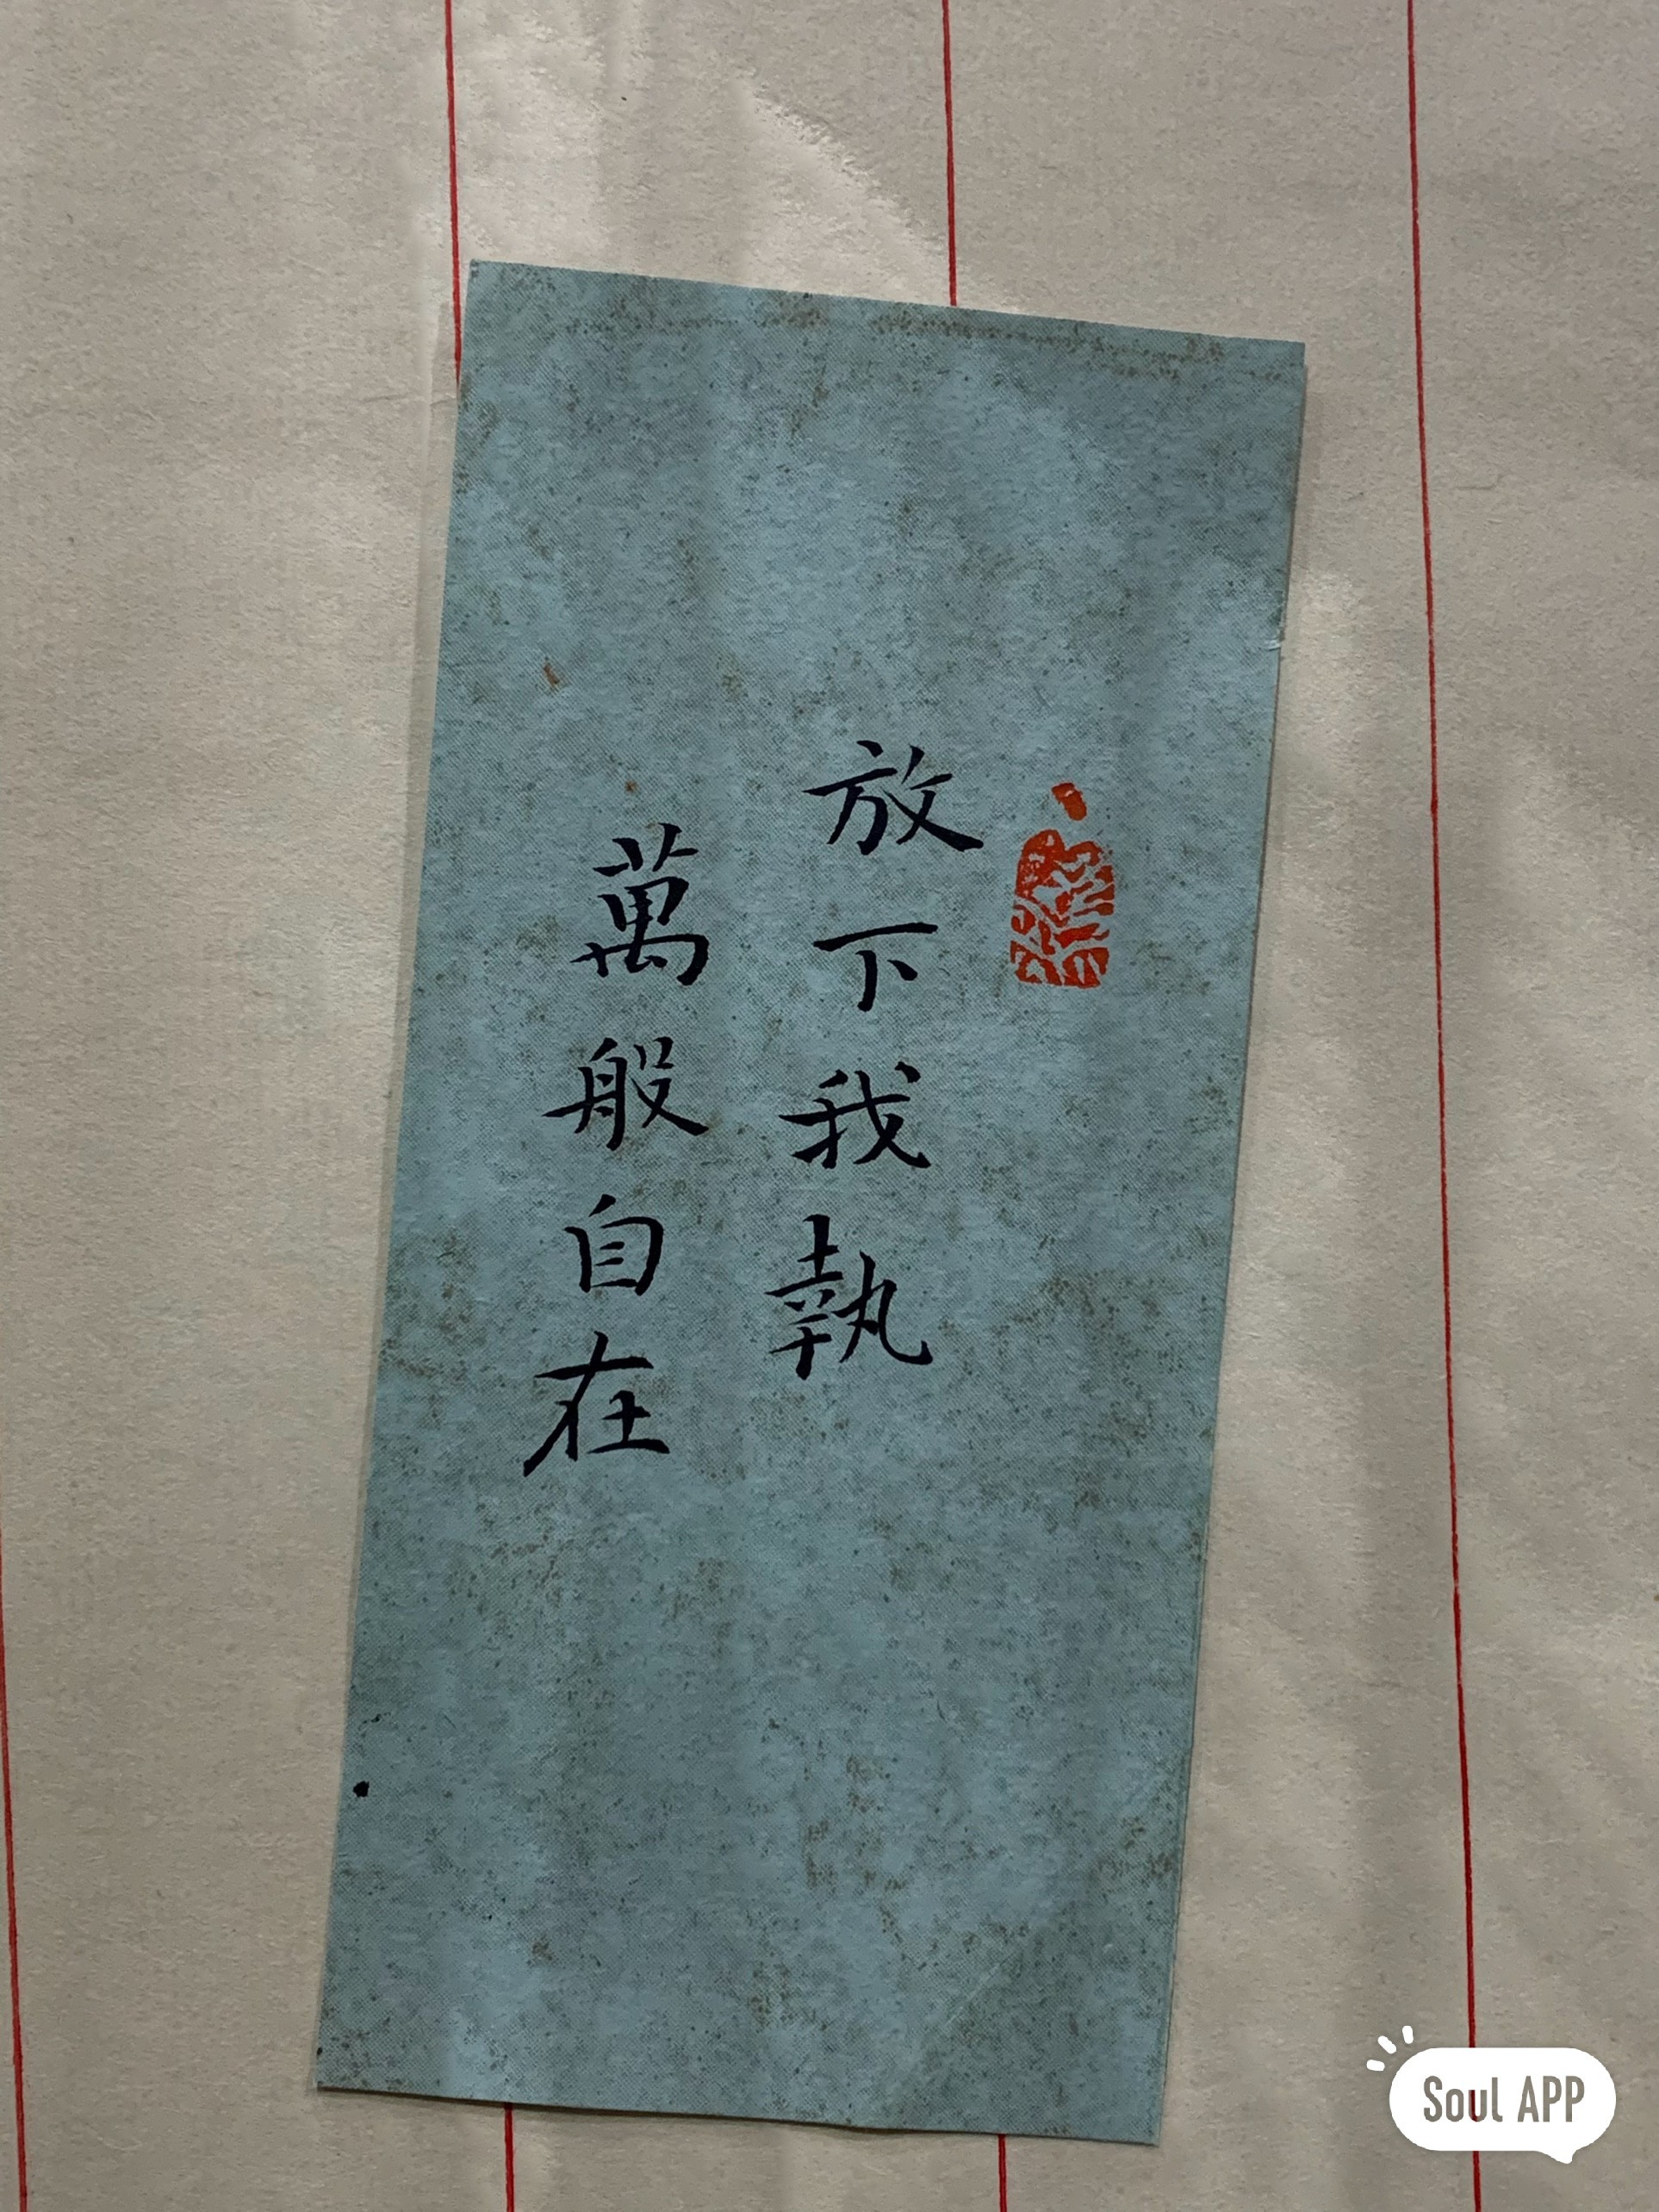 放下我執
萬般自在
Soul APP